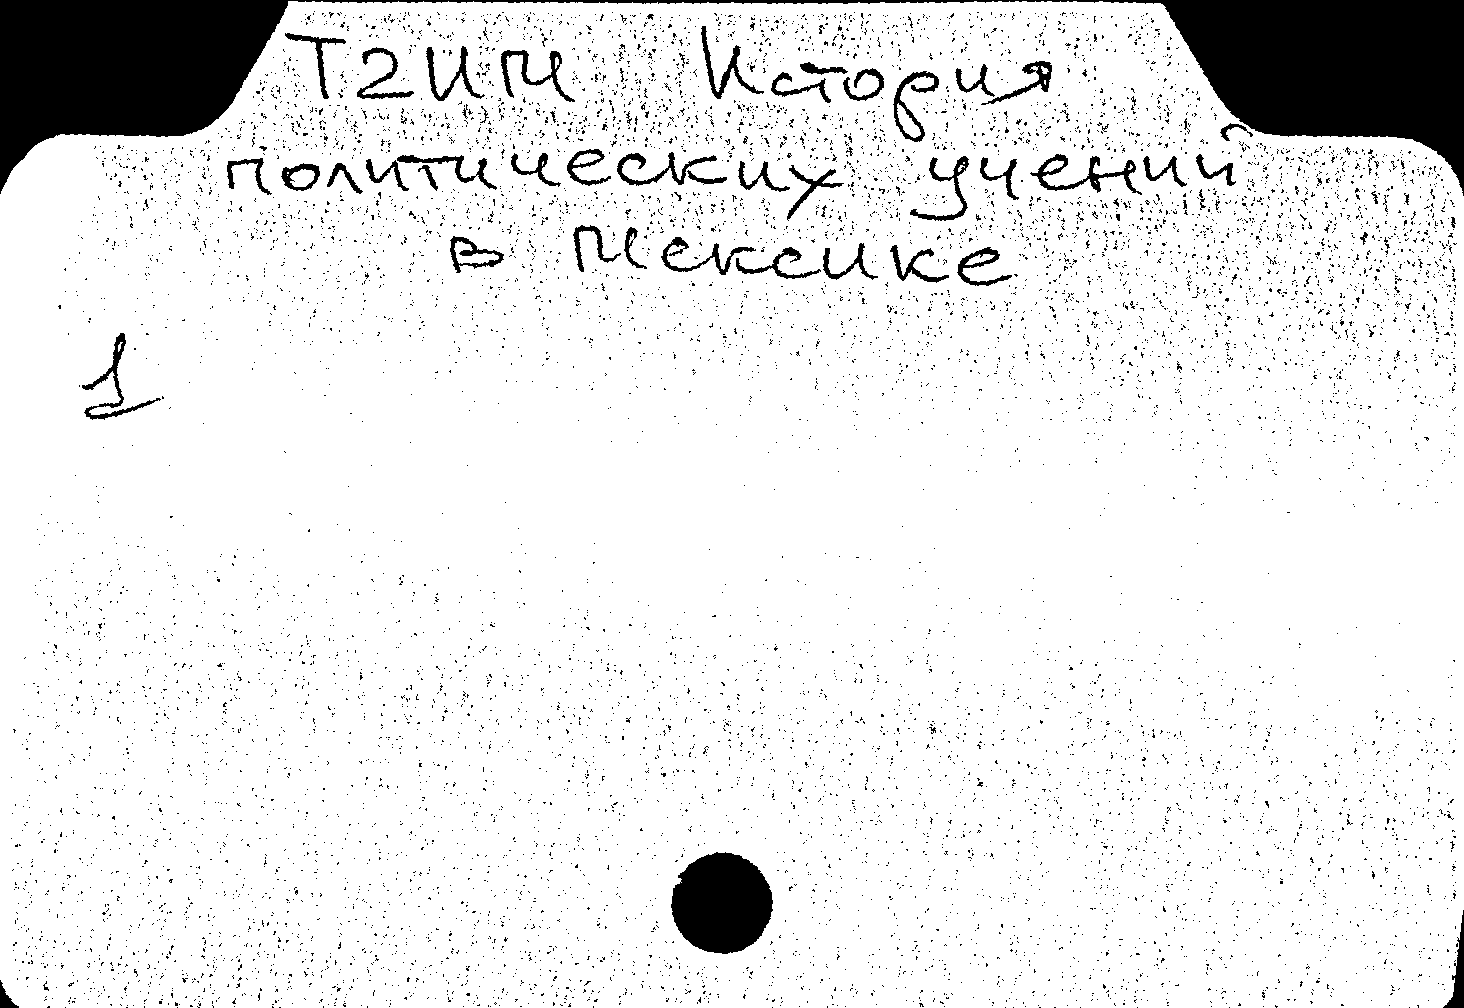 Т2ИМ История
политических учений
в Мексике
1